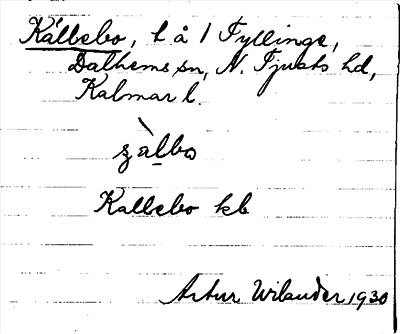 Källsebo, l å 1 Fyllinge,
Dalhems sn, N. Tjusts hd,
Kalmar l.
Kallsebo kb
Artur Wilander 1930